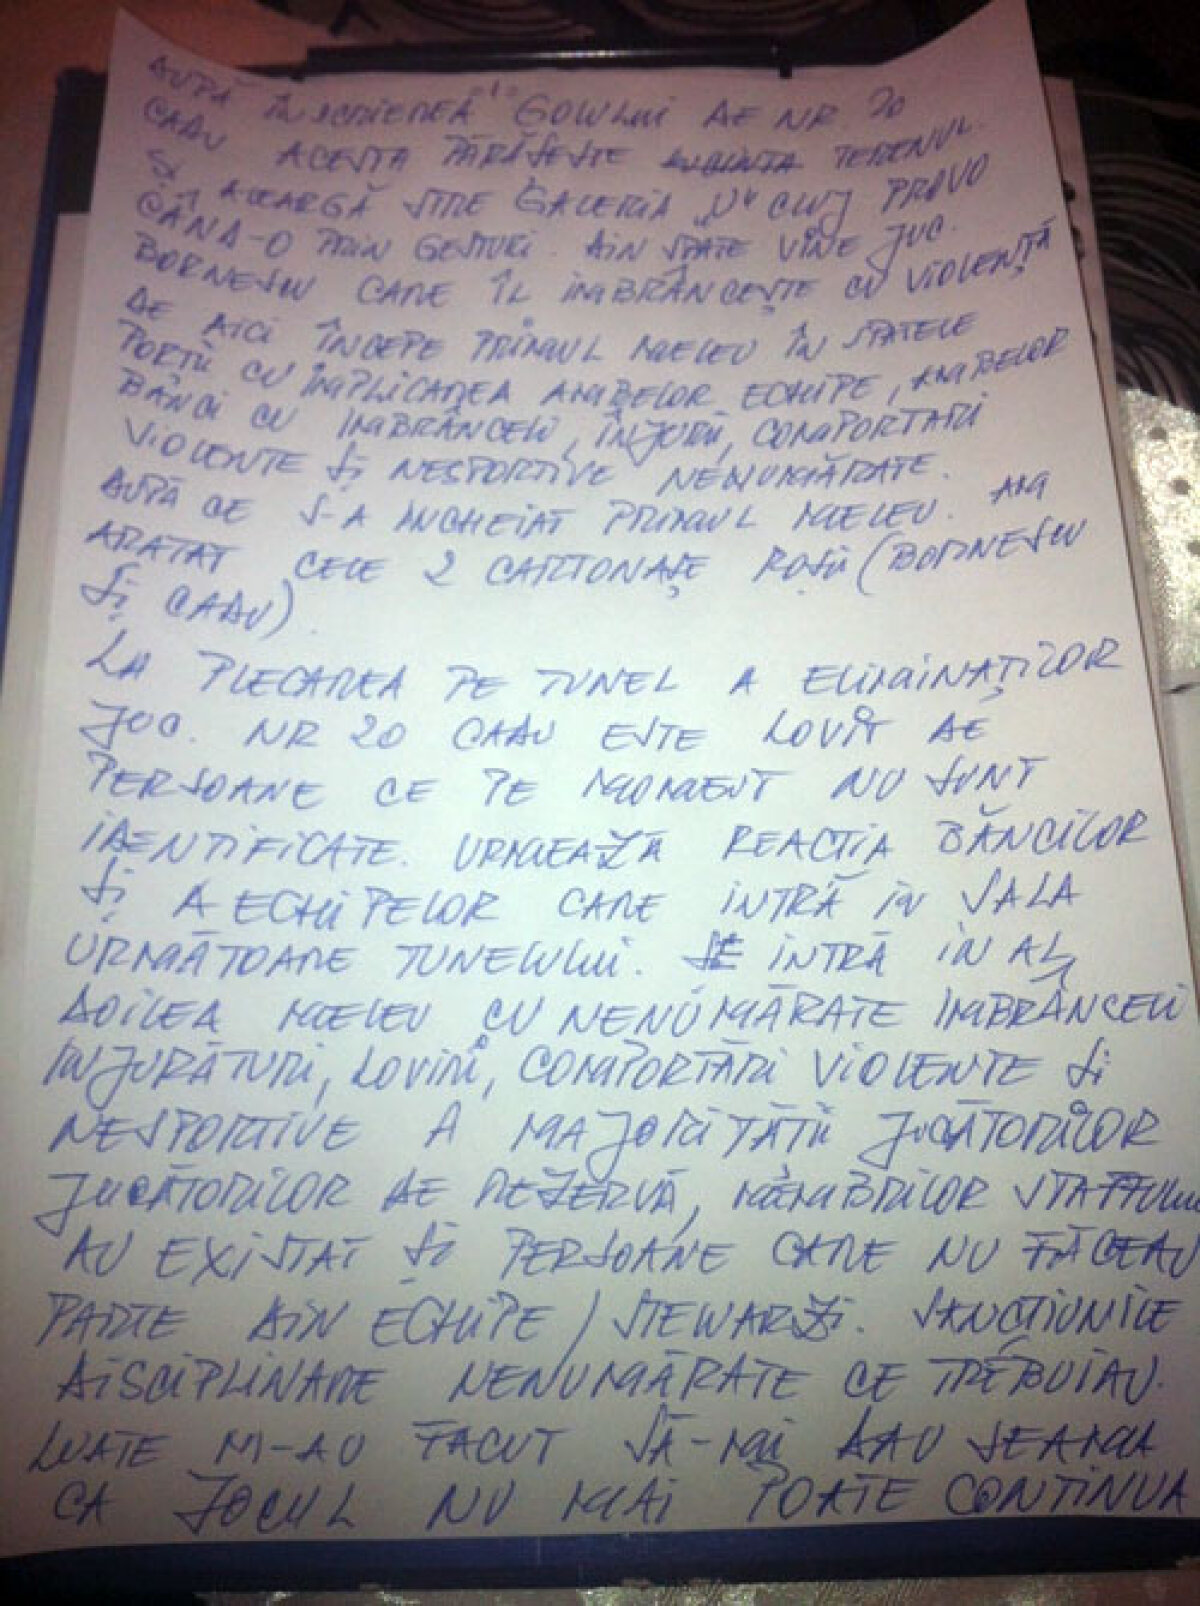 DUPĂ ÎNSCRIEREA GOLULUI DE NR. 20
CADU ACESTA PĂRĂSEȘTE TERENUL.
ȘI ALEARGĂ SPRE GALERIA "U" CLUJ PROVO
CÂND-O PRIN GESTURI. DIN SPATE VINE JUC.
BORNESCU CARE ÎL IMBRÂNCEȘTE CU VIOLENȚĂ
DE AICI ÎNCEPE PRIMUL MELEU ÎN SPATELE
PORȚII CU IMPLICAREA AMBELOR ECHIPE, AMBELOR
BĂNCI CU IMBRÂNCELI, INJURII, COMPORTARI
VIOLENTE ȘI NESPORTIVE NENUMĂRATE.
DUPĂ CE S-A INCHEIAT PRIMUL MELEU. AM
ARATAT CELE 2 CARTONAȘE ROȘII (BORNESCU
ȘI CADU).
LA PLECAREA PE TUNEL A ELIMINAȚILOR
JUC. NR 20 CADU ESTE LOVIT DE
PERSOANE CE PE MOMENT NU SUNT
IDENTIFICATE. URMEAZĂ REACTIA BĂNCILOR
ȘI A ECHIPELOR CARE INTRĂ IN SALA
URMĂTOARE TUNELULUI. SE INTRĂ IN AL
DOILEA MELEU CU NENUMĂRATE IMBRÂNCELI
INJURĂTURI, LOVIRI, COMPORTĂRI VIOLENTE ȘI
NESPORTIVE A MAJORITĂTII JUCĂTORILOR
JUCĂTORILOR DE REZERVĂ, MEMBRILOR STAFFULUI
AU EXISTAT ȘI PERSOANE CARE NU FĂCEAU
PARTE DIN ECHIPE / STEWARZI. SANCTIUNILE
DISCIPLINARE NENUMĂRATE CE TREBUIAU
LUATE M-AU FACUT SĂ-MI DAU SEAMA
CA JOCUL NU MAI POATE CONTINUA